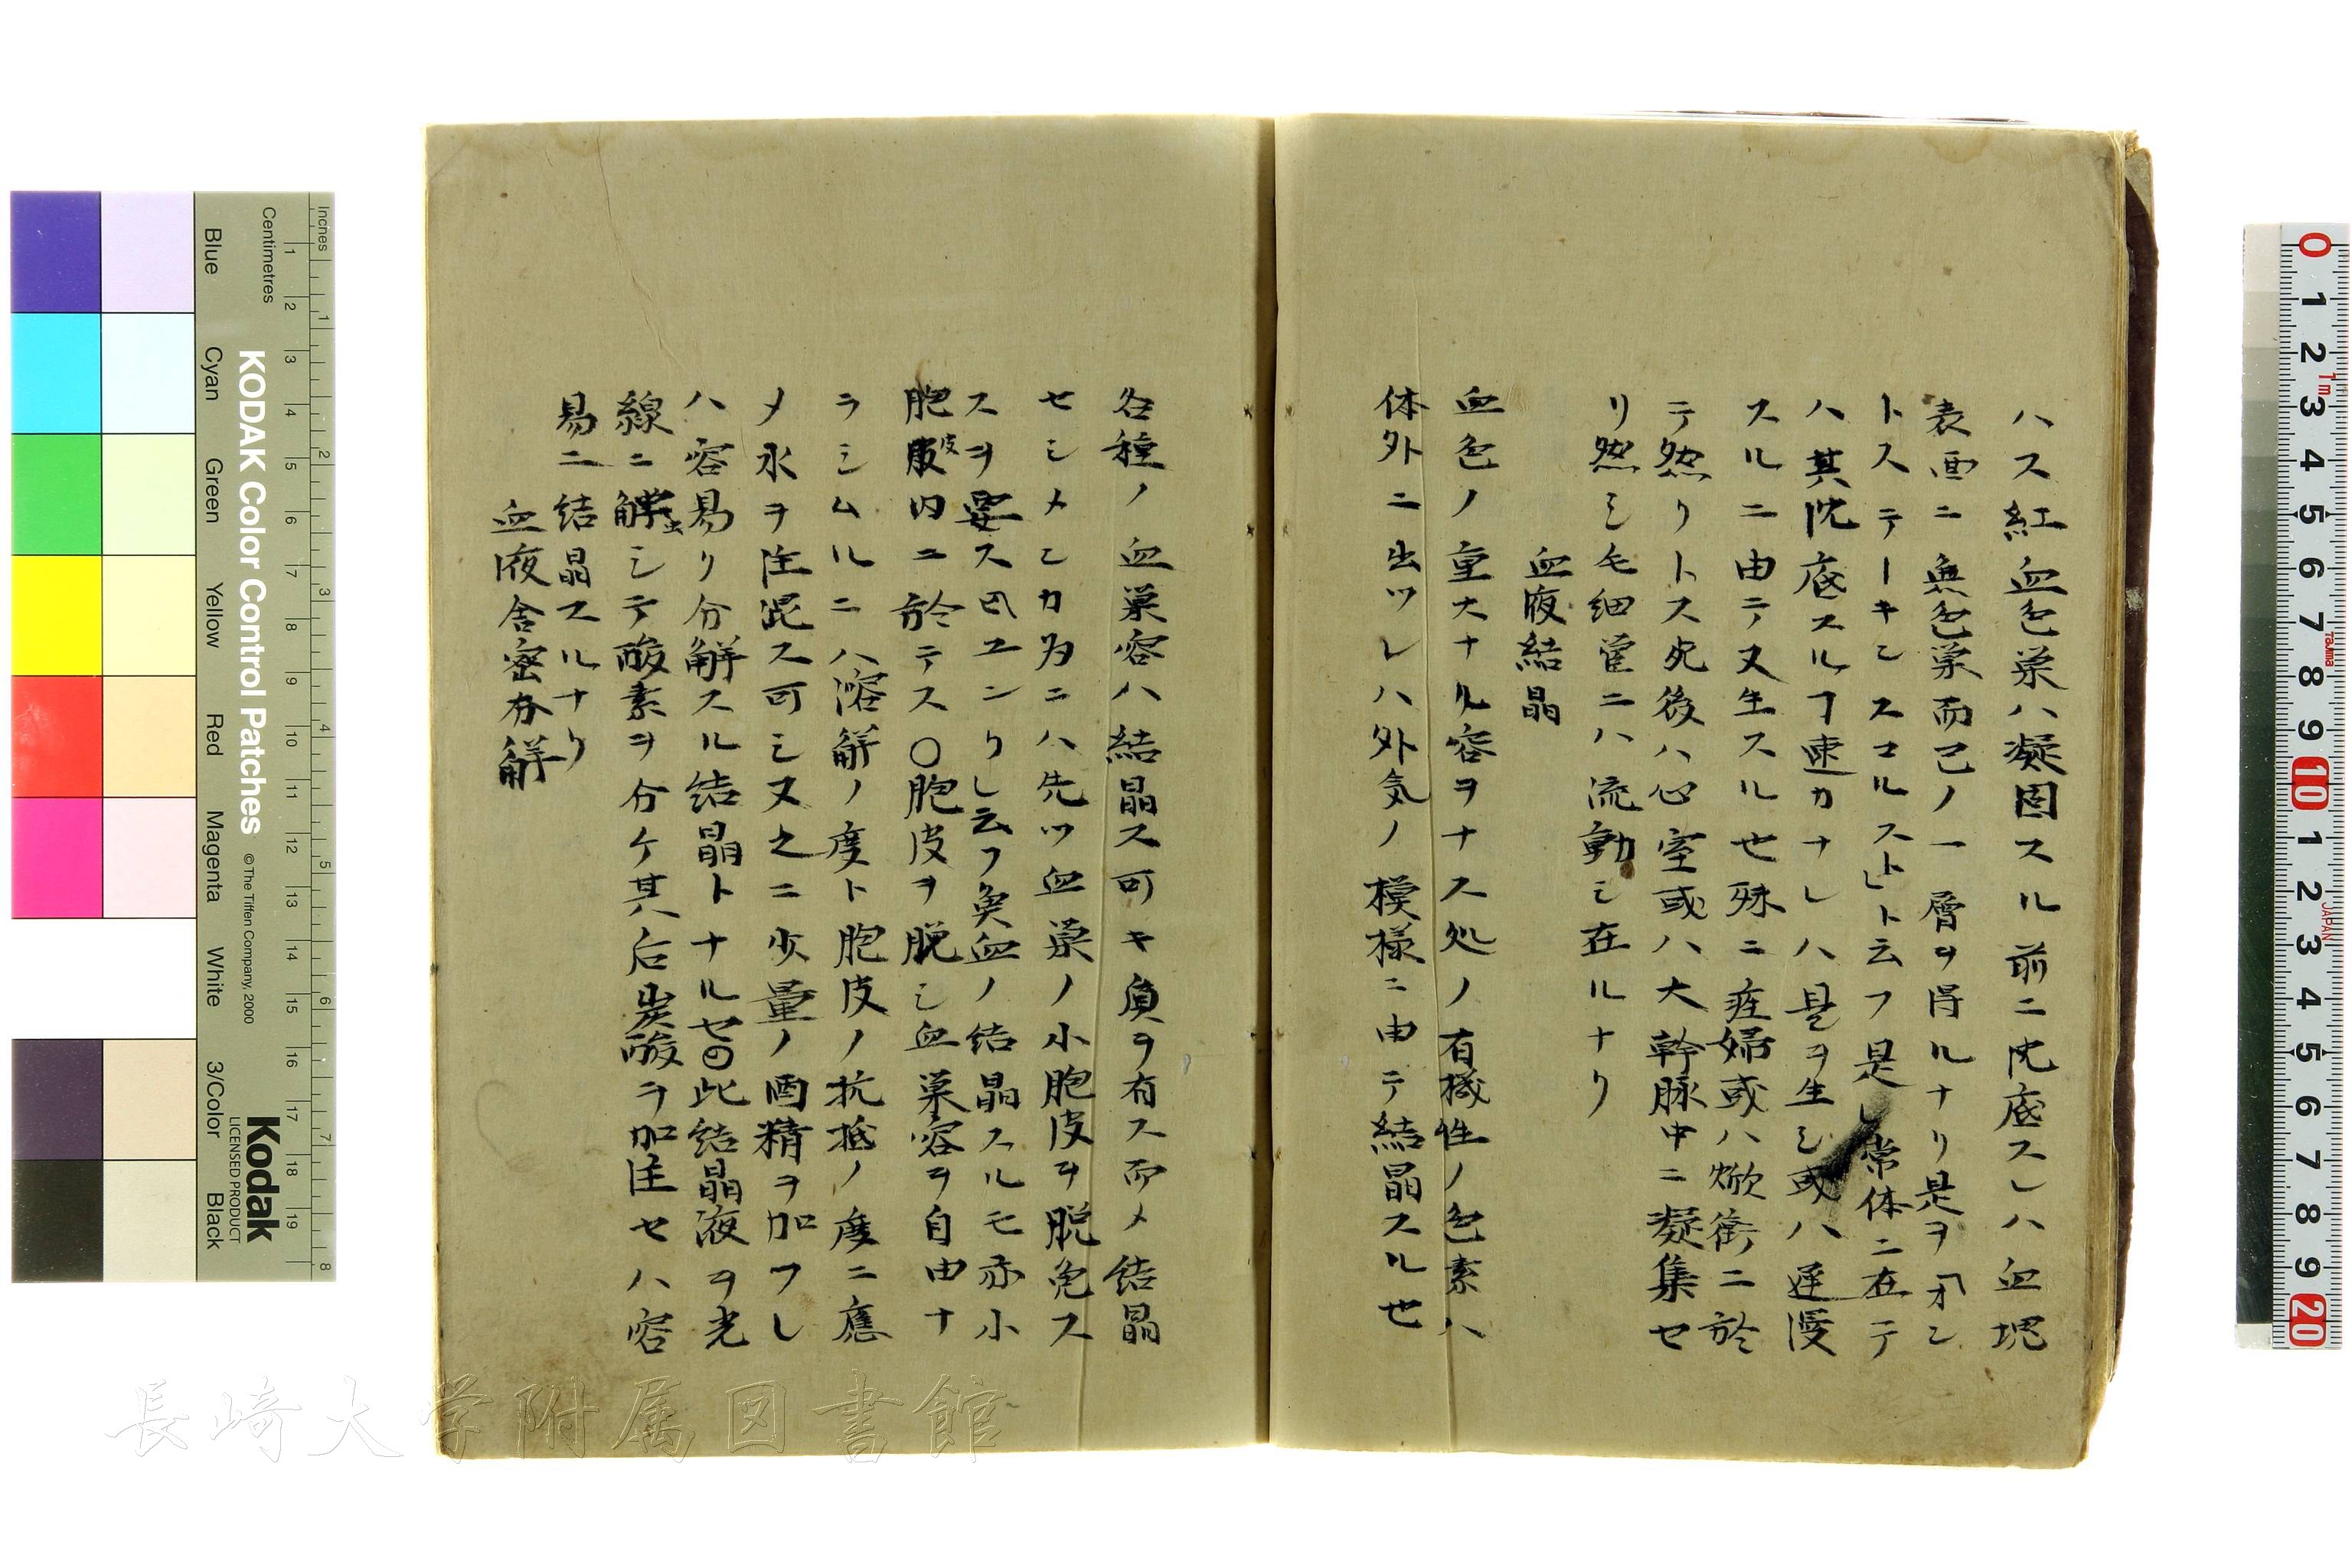 ハス紅血色巣ハ凝固スル前ニ沈底スレハ血塊
表面ニ無色巣而已ノ一層ヲ得ルナリ是ヲ「オン
トステーキンスコルスト」ト云フ是レ常体ニ在テ
ハ其沈底スルヿ速カナレハ是ヲ生シ或ハ遅慢
スルニ由テ又生スル也殊ニ産婦或ハ焮衝ニ於
テ然リトス死後ハ心室或ハ大幹脉中ニ凝集セ
リ然シ毛細管ニハ流動シ在ルナリ
血液結晶
血色ノ重大ナル容ヲナス処ノ有機性ノ色素ハ
体外ニ出ツレハ外気ノ模様ニ由テ結晶スル也
各種ノ血巣容ハ結晶ス可キ負ヲ有ス而メ結晶
セシメンカ為ニハ先ツ血巣ノ小胞皮ヲ脱免ス
スヲ要ス云フ魚血ノ结晶スルモ亦小
胞皮内ニ於テス〇胞皮ヲ脱シ血巣容ヲ自由ナ
ラシムルニハ溶解ノ度ト胞皮ノ抗抵ノ度ニ應
メ水ヲ注混ス可シ又之ニ少量ノ酒精ヲ加フレ
ハ容易リ分解スル结晶トナル也〇此结晶液ヲ光
線ニ觸シテ酸素ヲ分ケ其后炭酸ヲ加注セハ容
易ニ结晶スルナリ
血液舎密分解
KODAK Color Control Patches
© The Tiffen Company, 2000
Kodak
LICENSED PRODUCT
Inches
Centimetres
Blue
Cyan
Green
Yellow
Red
Magenta
White
3/Color
Black
長崎大学附属図書館